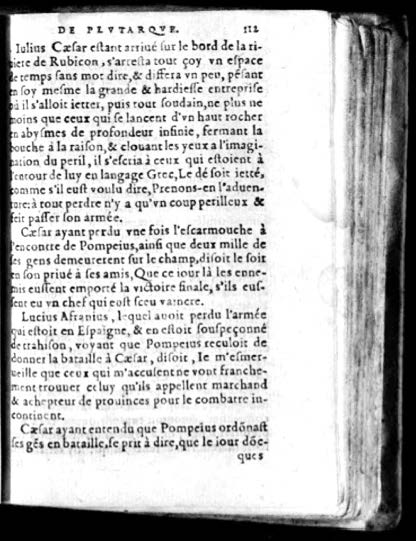 DE PLVTARQVE. 112
Iulius Cæsar estant arriué sur le bord de la ri-
uiere de Rubicon, s'arresta tout çoy vn espace
de temps sans mot dire, & differa vn peu, pésant
en soy mesme la grande & hardiesse entreprise
où il s'alloit ietter, puis tout soudain, ne plus ne
moins que ceux qui se lancent d'vn haut rocher
en abysmes de profondeur infinie, fermant la
bouche à la raison, & clouant les yeux a l'imagi-
nation du peril, il s'escria à ceux qui estoient à
l'entour de luy en langage Grec, Le dé soit ietté,
comme s'il eust voulu dire, Prenons-en l'aduen-
ture: à tout perdre n'y a qu'vn coup perilleux &
feit passer son armée.
Cæsar ayant perdu vne fois l'escarmouche à
l'encontre de Pompeius, ainsi que deux mille de
ses gens demeurerent sur le champ, disoit le soir
en son priué à ses amis, Que ce iour là les enne-
mis eussent emporté la victoire finale, s'ils eus-
sent eu vn chef qui eost sceu vaincre.
Lucius Afranius, lequel auoit perdu l'armée
qui estoit en Espaigne, & en estoit souspeçonné
de trahison, voyant que Pompeius reculoit de
donner la bataille à Cæsar, disoit, Ie m'esmer-
ueille que ceux qui m'accusent ne vont franche-
ment trouuer celuy qu'ils appellent marchand
& achepteur de prouinces pour le combatre in-
continent.
Cæsar ayant entendu que Pompeius ordõnast
ses gẽs en bataille, se prit à dire, que le iour dõc-
ques